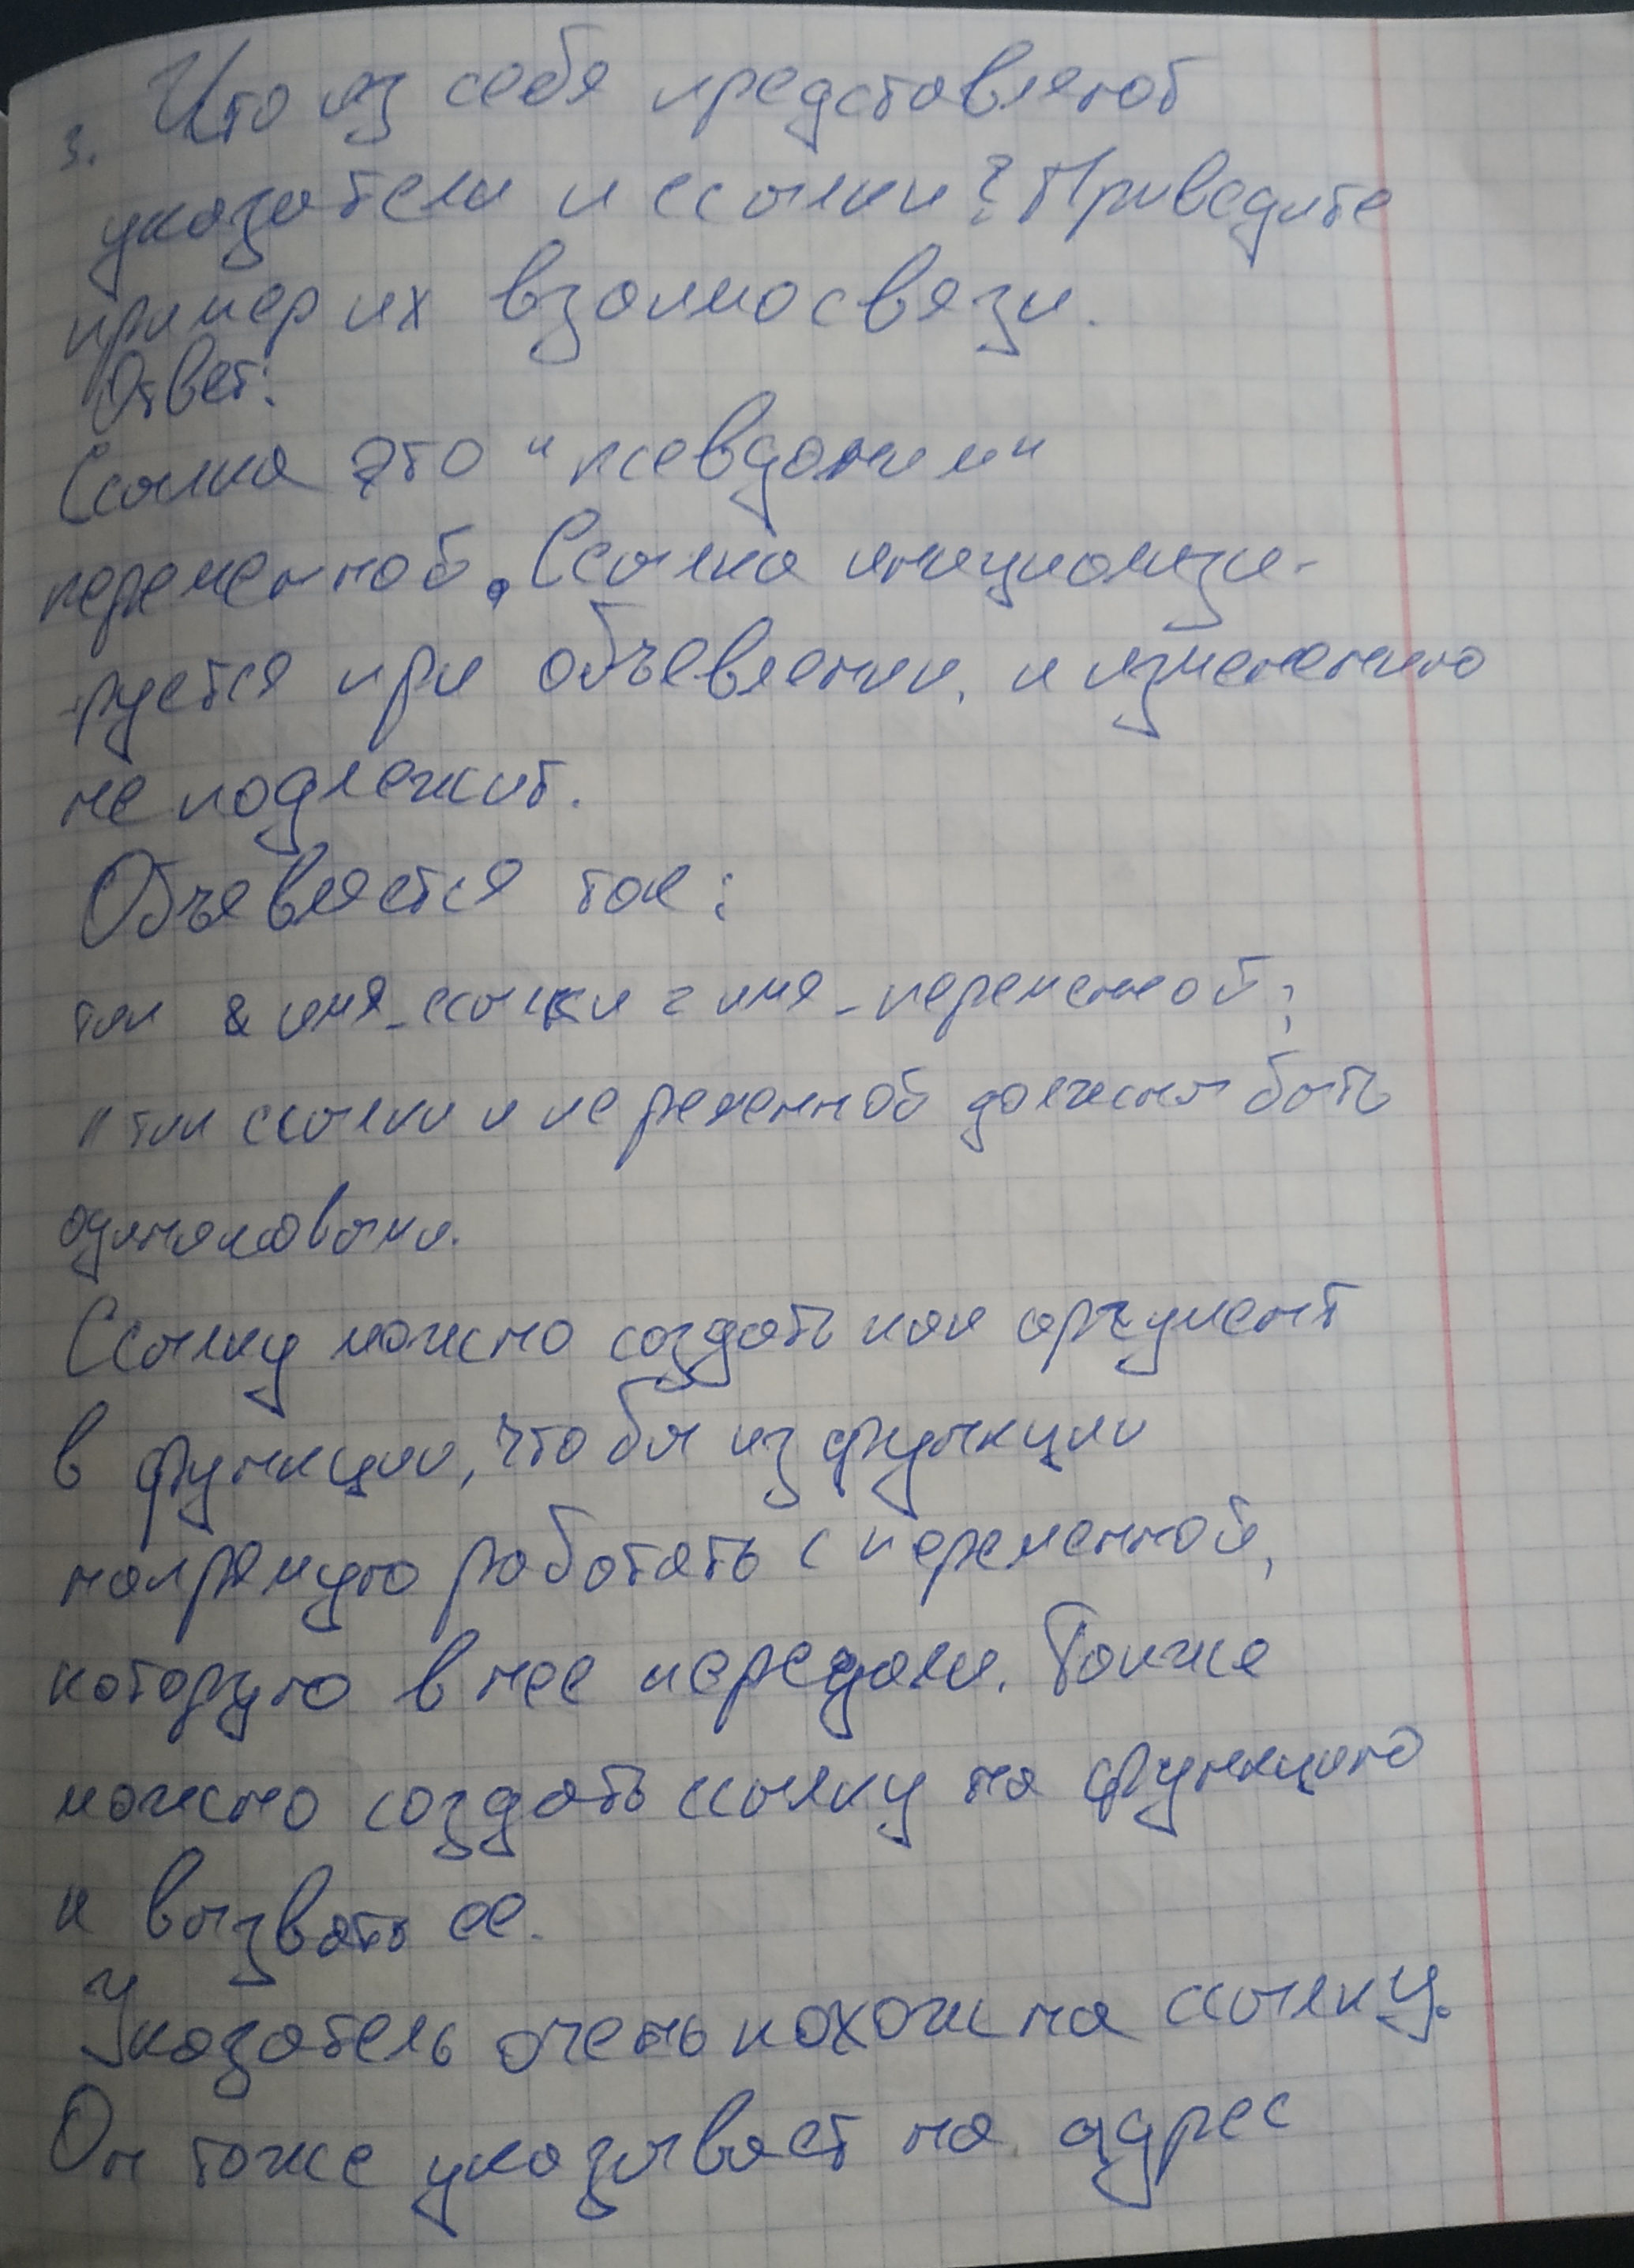 3. Что из себя представляют
указатели и ссылки? Приведите
пример их взаимосвязи.
Ответ:
Ссылка это "псевдоним"
переменной. Ссылка инициализи-
руется при объявлении, и изменению
не подлежит.
Объявляется так:
тип & имя_ссылки = имя_переменной;
// тип ссылки и переменной должны быть
одинаковыми.
Ссылку можно создать как аргумент
в функции, чтобы из функции
напрямую работать с переменной,
которую в нее передали. Также
можно создать ссылку на функцию
и вызвать ее.
Указатель очень похож на ссылку.
Он тоже указывает на адрес